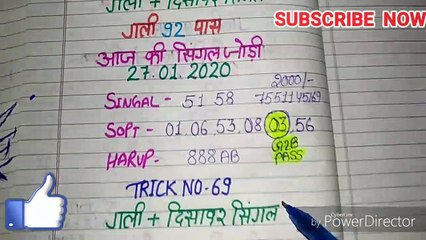 गली + दिसावर सिंगल
SUBSCRIBE NOW
गली 92 पास
आज की सिंगल जोड़ी
27.01.2020
2000/-
SINGAL - 51 58 7551145169
SOPT - 01.06.53.08.03.56
HARUP - 888 AB
GZB
PASS
TRICK NO-69
गली + दिसावर सिंगल
by PowerDirector